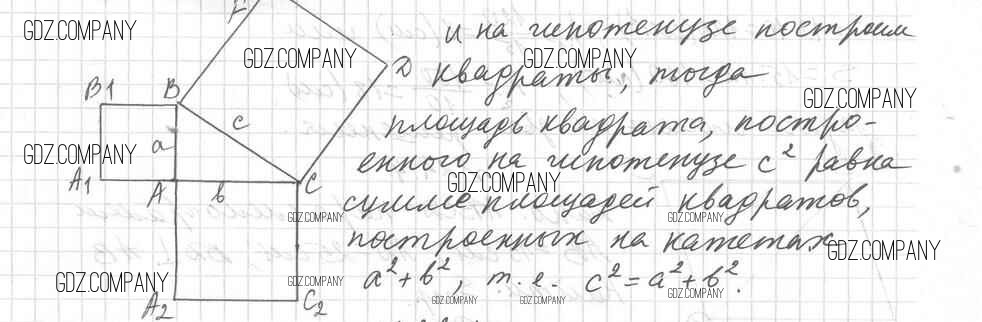 и на гипотенузе построим
квадраты, тогда
площадь квадрата, постро-
енного на гипотенузе c² равна
сумме площадей квадратов,
построенных на катетах
a²+b², т.е. c²=a²+b².
E
D
B1 B
c
a
A1 A b C
A2 C2
GDZ.COMPANY
GDZ.COMPANY
GDZ.COMPANY
GDZ.COMPANY
GDZ.COMPANY
GDZ.COMPANY
GDZ.COMPANY
GDZ.COMPANY
GDZ.COMPANY
GDZ.COMPANY
GDZ.COMPANY
GDZ.COMPANY
GDZ.COMPANY
GDZ.COMPANY